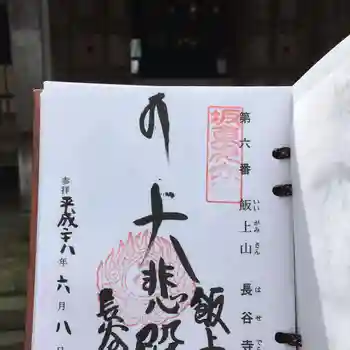 第六番 飯上山 長谷寺
いいがみさん はせで
飯上
大悲殿
長谷
参拝 平成廿八年 六月八日